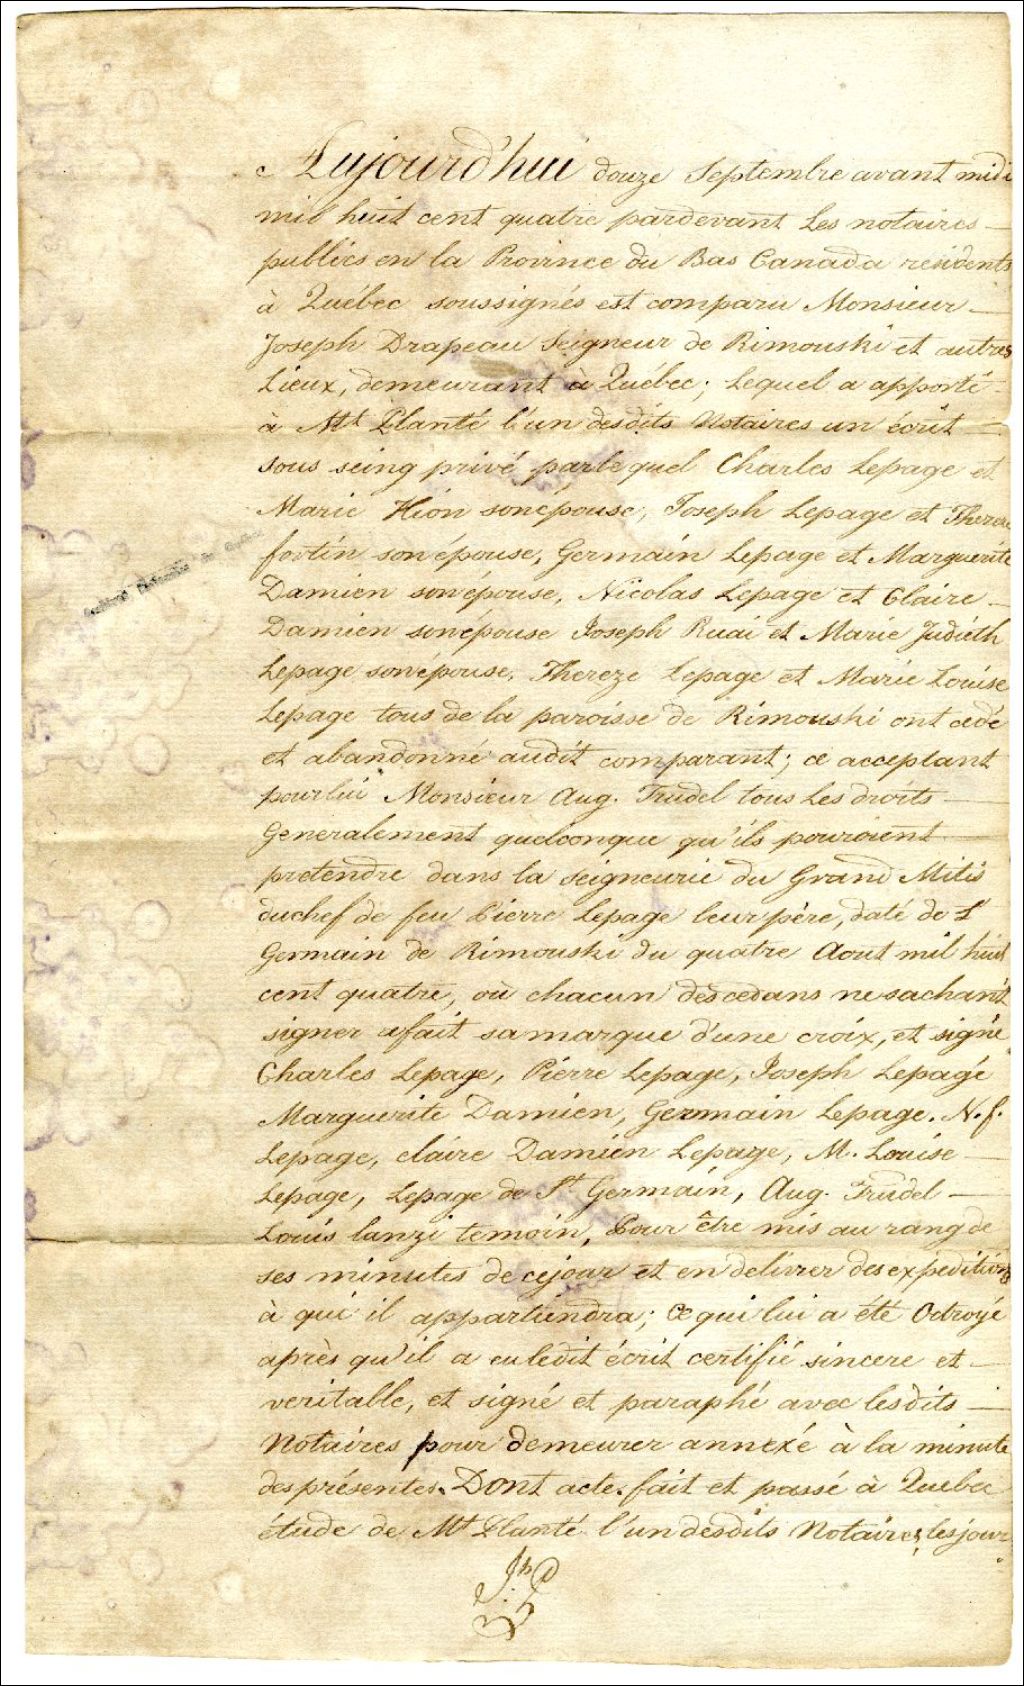 Aujourd'hui douze Septembre avant midi
mil huit cent quatre pardevant Les notaires
publics en la Province du Bas Canada residents
à Québec soussignés est comparu Monsieur
Joseph Drapeau Seigneur de Rimouski et autres
Lieux, demeurant à Québec; Lequel a apporté
à Mt. Planté l'un desdits Notaires un écrit
sous seing privé par lequel Charles Lepage et
Marie Hion son épouse, Joseph Lepage et Thereze
fortin son épouse, Germain Lepage et Marguerite
Damien son épouse, Nicolas Lepage et Claire
Damien son épouse Joseph Ruai et Marie Judieth
Lepage son épouse, Thereze Lepage et Marie Louise
Lepage tous de la paroisse de Rimouski ont cedé
et abandonné audit comparant; ce acceptant
pour lui Monsieur Aug. Trudel tous Les droits
Generalement quelconque qu'ils pouroient
pretendre dans la seigneurie du Grand Mitis
du chef de feu Pierre Lepage leur père, daté de St
Germain de Rimouski du quatre Aout mil huit
cent quatre, où chacun des cedans ne sachant
signer a fait sa marque d'une croix, et signé
Charles Lepage, Pierre Lepage, Joseph Lepage
Marguerite Damien, Germain Lepage. N. f.
Lepage, claire Damien Lepage, M. Louise
Lepage, Lepage de St Germain, Aug. Trudel
Louis lanzi temoin, Pour être mis au rang de
ses minutes de ce jour et en delivrer des expeditions
à qui il appartiendra; Ce qui lui a été Octroyé
après qu'il a eu ledit écrit certifié sincere et
veritable, et signé et paraphé avec lesdits
Notaires pour demeurer annexé à la minute
des présentes. Dont acte. fait et passé à Quebec
étude de Mt. Planté l'un desdits Notaires, les jour
Jh D